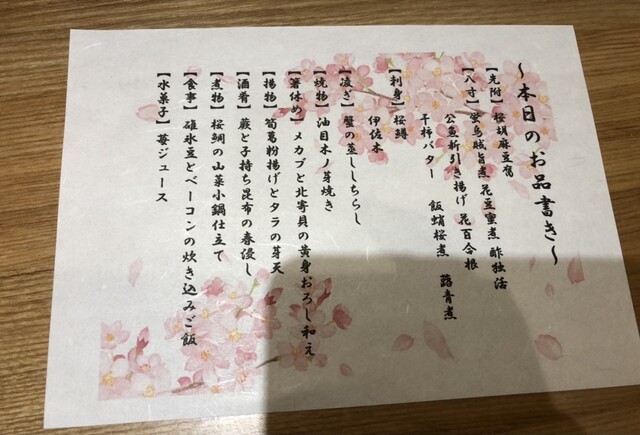 ～本日のお品書き～
【先附】 桜胡麻豆腐
【八寸】 蛍烏賊旨煮 花豆蜜煮 酢独活
公魚新引き揚げ 花百合根
干柿バター 飯蛸桜煮 蕗青煮
【刺身】 桜鱒
伊佐木
【凌ぎ】 蟹の蒸しちらし
【焼物】 油目木ノ芽焼き
【箸休め】 メカブと北寄貝の黄身おろし和え
【揚物】 筍葛粉揚げとタラの芽天
【酒肴】 蕨と子持ち昆布の春浸し
【煮物】 桜鯛の山菜小鍋仕立て
【食事】 碓氷豆とベーコンの炊き込みご飯
【水菓子】 苺ジュース